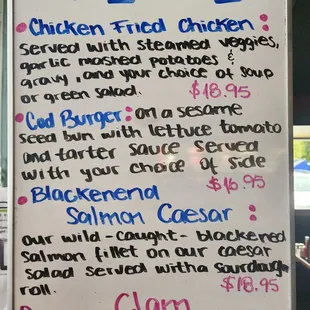 • Chicken Fried Chicken :
Served with steamed veggies,
garlic mashed potatoes &
gravy, and your choice of soup
or green salad. $18.95
• Cod Burger: on a sesame
seed bun with lettuce tomato
and tarter sauce served
with your choice of side
$16.95
• Blackenend
Salmon Caesar :
our wild-caught-blackened
salmon fillet on our caesar
salad served with a sourdough
roll. $18.95
Clam